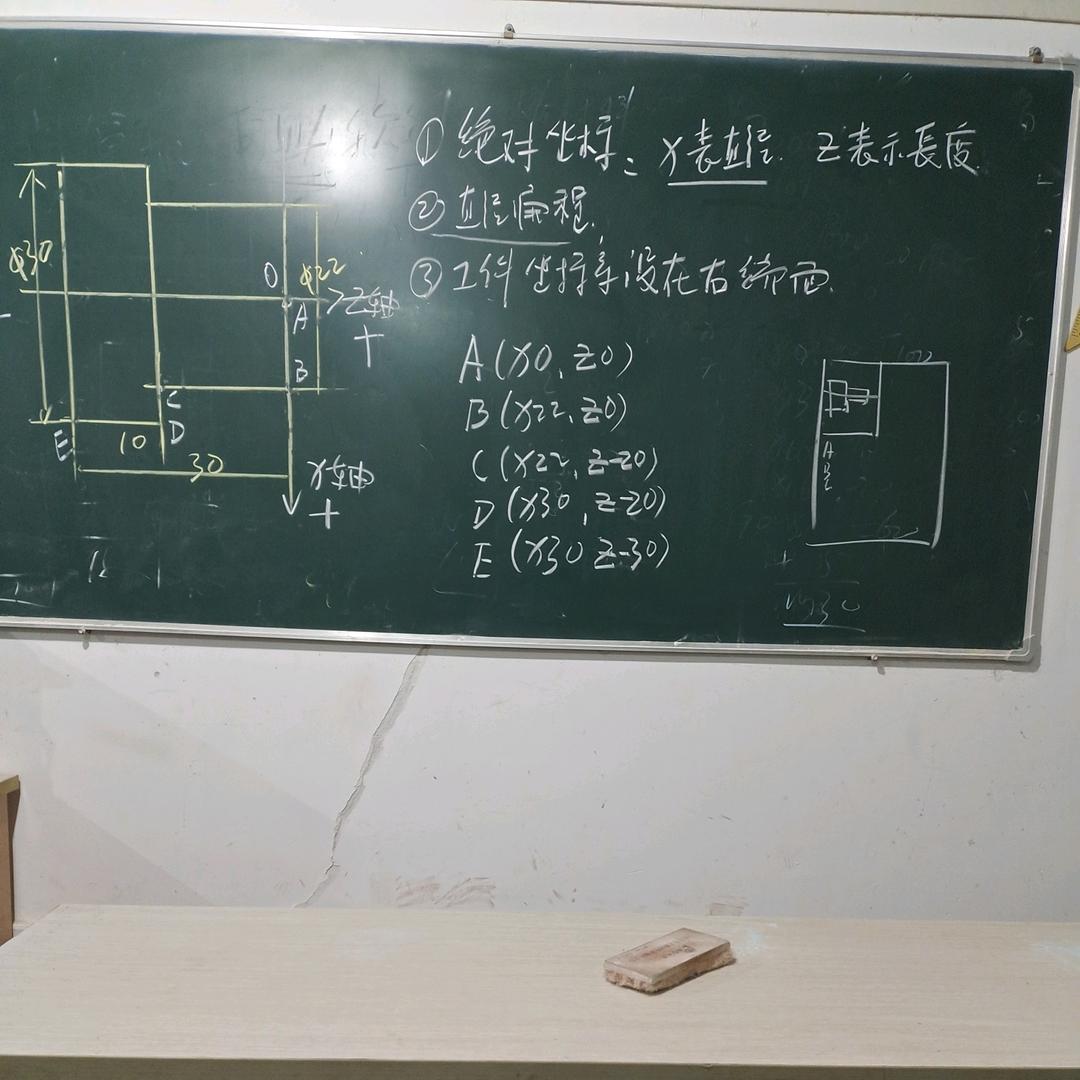 ① 绝对坐标: X表直径. Z表示長度
② 直径编程.
③ 工件坐标系设在右端面.
A(X0, Z0)
B(X22, Z0)
C(X22, Z-20)
D(X30, Z-20)
E(X30 Z-30)
φ30
O
φ22
A
Z轴
+
B
C
E
10
D
30
X轴
+
100
A